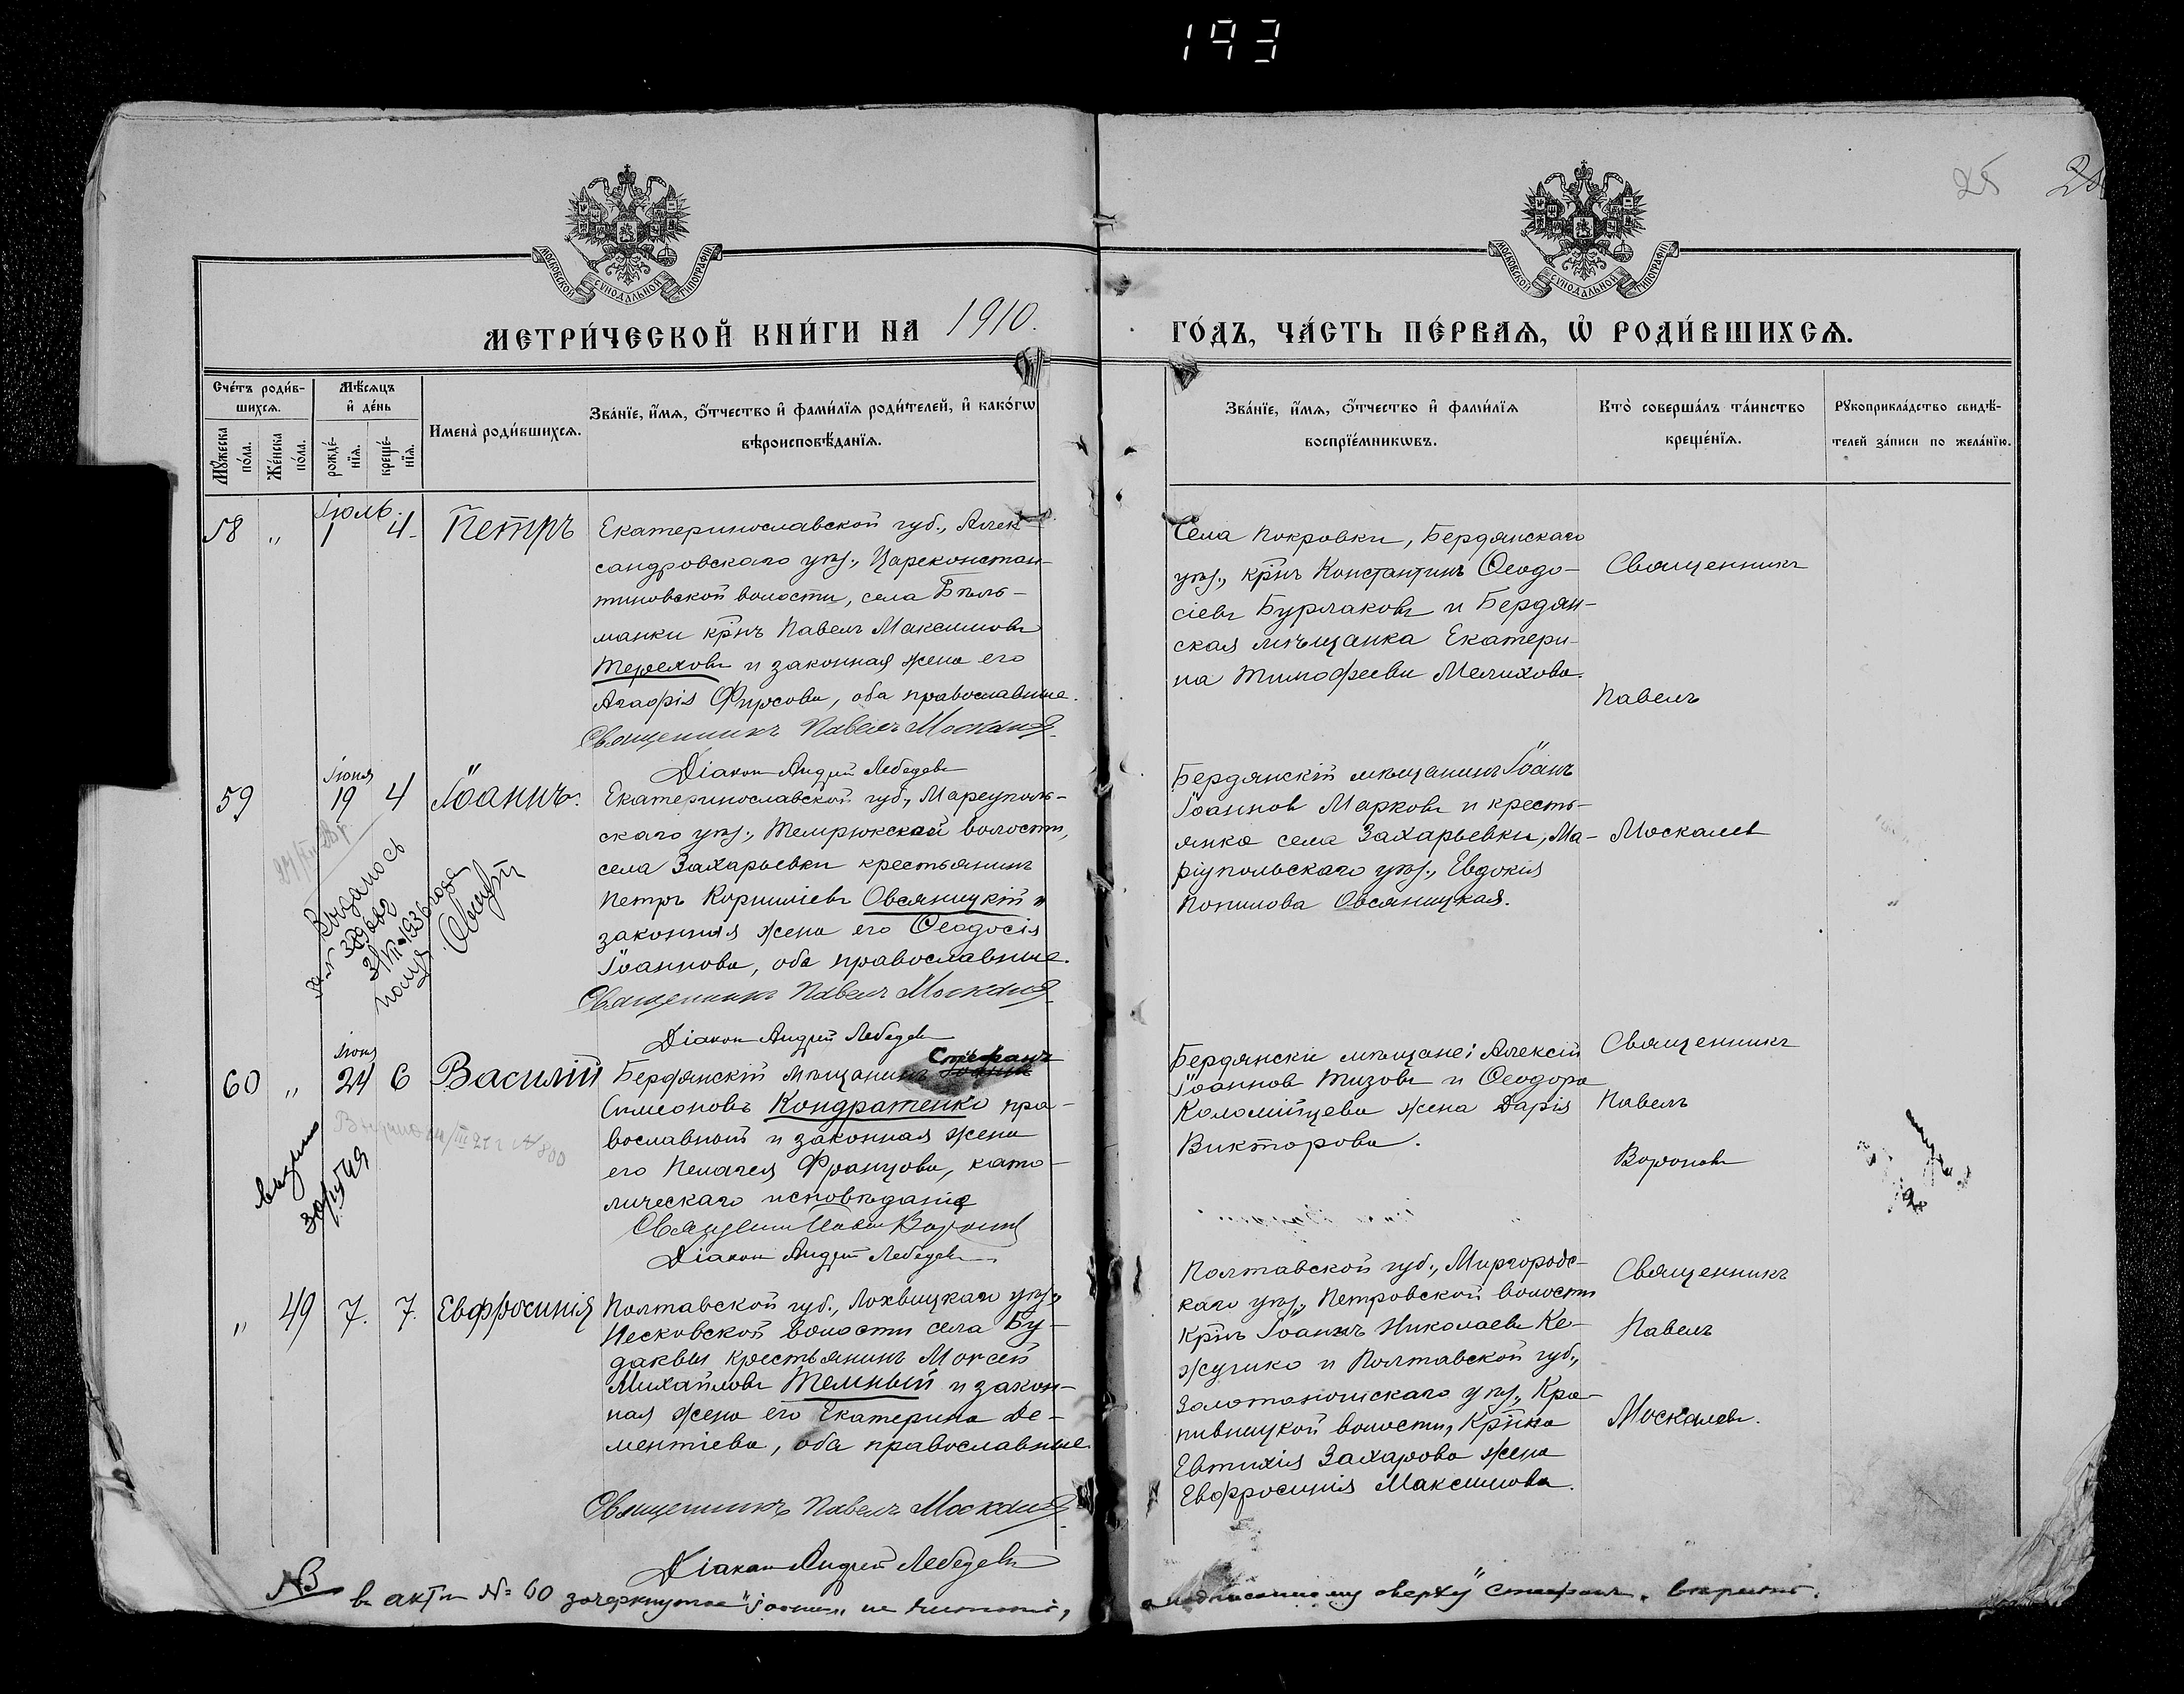 193
25
МОСКОВСКОЙ СѴНОДАЛЬНОЙ ТИПОГРАФІИ
МОСКОВСКОЙ СѴНОДАЛЬНОЙ ТИПОГРАФІИ
МЕТРИ́ЧЕСКОЙ КНИ́ГИ НА 1910.
ГО́ДЪ, ЧА́СТЬ ПЕ́РВАѦ, Ѡ҆ РОДИ́ВШИХСѦ.
Сче́тъ роди́в-
шихсѧ.
Мꙋ́жеска
по́ла.
Же́нска
по́ла.
Мѣ́сѧцъ
и҆ де́нь
рожде́-
нїѧ.
креще́-
нїѧ.
Имена̀ роди́вшихсѧ.
Зва́нїе, и҆́мѧ, ѻ҆́тчество и҆ фами́лїѧ роди́телей, и҆ како́гѡ
вѣроисповѣ́данїѧ.
Зва́нїе, и҆́мѧ, ѻ҆́тчество и҆ фами́лїѧ
воспрїе́мникѡвъ.
Кто̀ соверша́лъ та́инство
креще́нїѧ.
Рꙋкоприкла́дство свидѣ́-
телей за́писи по жела́нїю.
Іюль.
58 „ 1 4. Петръ
Екатеринославской губ., Алек-
сандровскаго уѣз., Цареконстан-
тиновской волости, села Бѣль-
манки крнъ Павелъ Максимовъ
Тереховъ и законная жена его
Агафія Фирсова, оба православные.
Священникъ Павелъ Москалев
Діаконъ Андрей Лебедевъ
Села Покровки, Бердянскаго
уѣз., крнъ Константинъ Ѳеодо-
сіевъ Бурлаковъ и Бердян-
ская мѣщанка Екатери-
на Тимофеева Мелихова.
Священникъ
Павелъ
Москалев
Іюня
59 19 4 Іоаннъ.
Екатеринославской губ., Мареуполь-
скаго уѣз., Темрюкской волости,
села Захарьевки крестьянинъ
Петръ Корниліевъ Овсяницкій и
законная жена его Ѳеодосія
Іоаннова, оба православные.
Священникъ Павелъ Москалев
Діаконъ Андрей Лебедевъ
Бердянскій мѣщанинъ Іоанъ
Іоаннов Марковъ и кресть-
янка села Захарьевки, Ма-
ріупольскаго уѣз., Евдокія
Попилова Овсяницкая.
Выдалось
1936 года
Іюня
60 „ 24 6 Василій
Бердянскій мѣщанинъ Стефанъ
Симеоновъ Кондратенко пра-
вославный и законная жена
его Пелагея Францова, като-
лическаго исповѣданія
Священ Павелъ Воронов
Діаконъ Андрей Лебедевъ
Бердянскіе мѣщане: Алексій
Іоаннов Тизовъ и Ѳеодора
Коломійцева жена Дарія
Викторова.
Священникъ
Павелъ
Вороновъ
„ 49 7. 7. Евфросинія
Полтавской губ., Лохвицкаго уѣз.,
Песковской волости села Бу-
даквы крестьянинъ Моѵсей
Михайловъ Темный и закон-
ная жена его Екатерина Де-
ментіева, оба православные.
Священникъ Павелъ Москалев
Діаконъ Андрей Лебедевъ
Полтавской губ., Миргородс-
каго уѣз., Петровской волости
крнъ Іоаннъ Николаевъ Ке-
жушко и Полтавской губ.,
Золотоношскаго уѣз., Кро-
пивницкой волости, крнна
Евтихія Захарова жена
Евфросинія Максимова.
Священникъ
Павелъ
Москалевъ.
NB в актѣ № 60 зачеркнутое „Іоаннъ„ не читать, а надписанному сверху „Стефанъ„ вѣрить.